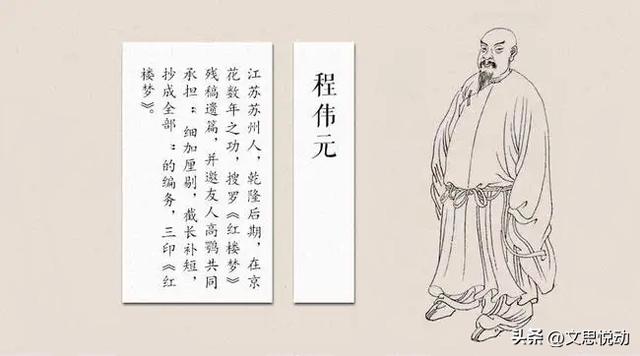 程伟元
江苏苏州人，乾隆后期，在京
花数年之功，搜罗《红楼梦》
残稿遗篇，并邀友人高鹗共同
承担“细加厘剔，截长补短，
抄成全部”的编务，三印《红
楼梦》。
头条 @文思悦动